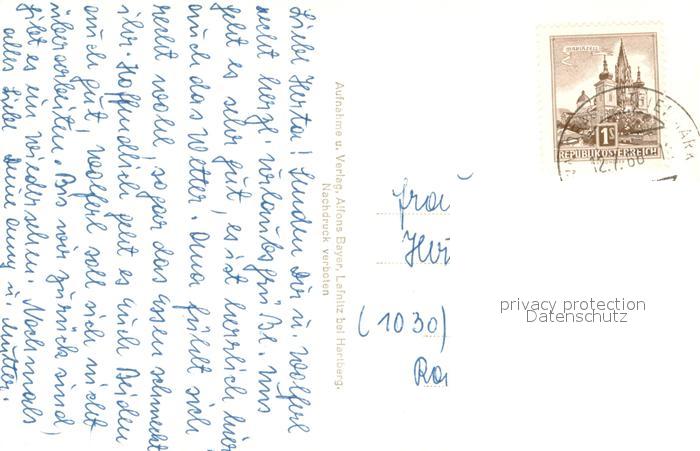 Liebe Herta! Senden Dir u. Wolferl
recht herzl. Urlaubsgrüße. Uns
geht es sehr gut, es ist herrlich hier
auch das Wetter. Oma fühlt sich
recht wohl, sogar das Essen schmeckt
ihr. Hoffendlich geht es Euch Beiden
auch gut, Wolferl soll sich nicht
überarbeiten. Bis wir zurück sind,
gibt es ein Wiedersehen. Nochmals
alles Liebe Deine u. Mutter.
Aufnahme u. Verlag, Alfons Bayer, Lafnitz bei Hartberg.
Nachdruck verboten
MARIAZELL
1S
REPUBLIK ÖSTERREICH
Frau
Her
(1030)
privacy protection
Datenschutz